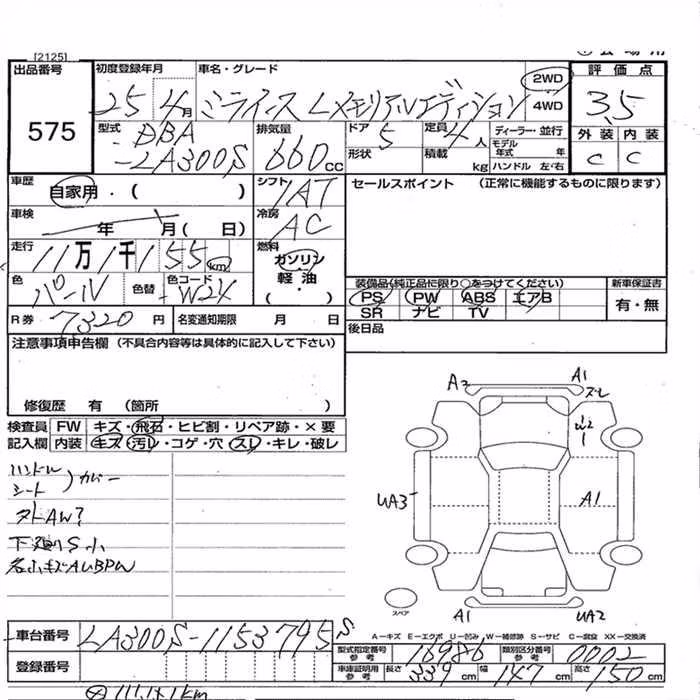 [2125]
出品番号
575
初度登録年月
25 4月
車名・グレード
ミライース Lメモリアルエディション
2WD
4WD
評価点
3.5
外装 内装
C C
型式
DBA
-LA300S
排気量
660cc
ドア 5
形状
定員 4人
積載 kg
ディーラー・並行
モデル年式 年
ハンドル 左・右
車歴
自家用・( )
シフト
IAT
セールスポイント (正常に機能するものに限ります)
車検
年 月( 日)
冷房
AC
走行
11万1千155km
燃料
ガソリン
軽油・
( )
色
パール
色替
色コード
W24
装備品(純正品に限り○をつけてください)
PS PW ABS エアB
SR ナビ TV
新車保証書
有・無
R券 7320円
名変通知期限 月 日
後日品
注意事項申告欄 (不具合内容等は具体的に記入して下さい)
修復歴 有 (箇所 )
検査員
記入欄
FW キズ・飛石・ヒビ割・リペア跡・×要
内装 キズ・汚レ・コゲ・穴・スレ・キレ・破レ
ハンドル
シート
カバー
外AW?
下廻りS小
各小キズAUBPW
A2
A1
スレ
W2
UA3
A1
スペア
A1
UA2
A-キズ E-エクボ U-凹み W-補修跡 S-サビ C-腐食 XX-交換済
車台番号
LA300S-1153795
S
登録番号
型式指定番号
参考
16986
類別区分番号
参考
0002
車庫証明用
参考
長さ 339cm
幅 147cm
高さ 150cm
111,141km